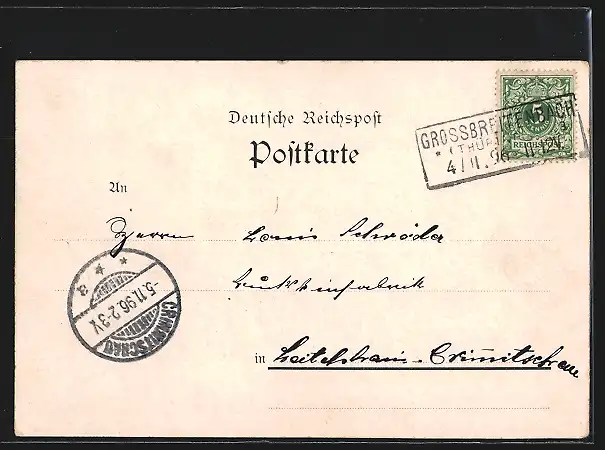 Deutsche Reichspost
Postkarte
5
REICHSPOST
GROSSBREITENBACH
* (THÜR
4/11.96 12
An
Herrn Louis Schröder
in Leitelshain-Crimmitschau
CRIMMITSCHAU
-5.11.96.2-3V.
* * a